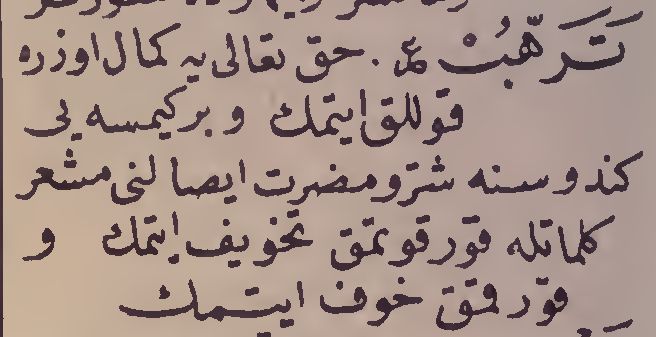 تَرَهُّبْ ع . حق تعالى يه كمال اوزره
قوللق ايتمك و بر كيمسه يى
كندوسنه شر و مضرت ايصالنى مشعر
كلماتله قورقوتمق تخويف ايتمك و
قورقمق خوف ايتمك